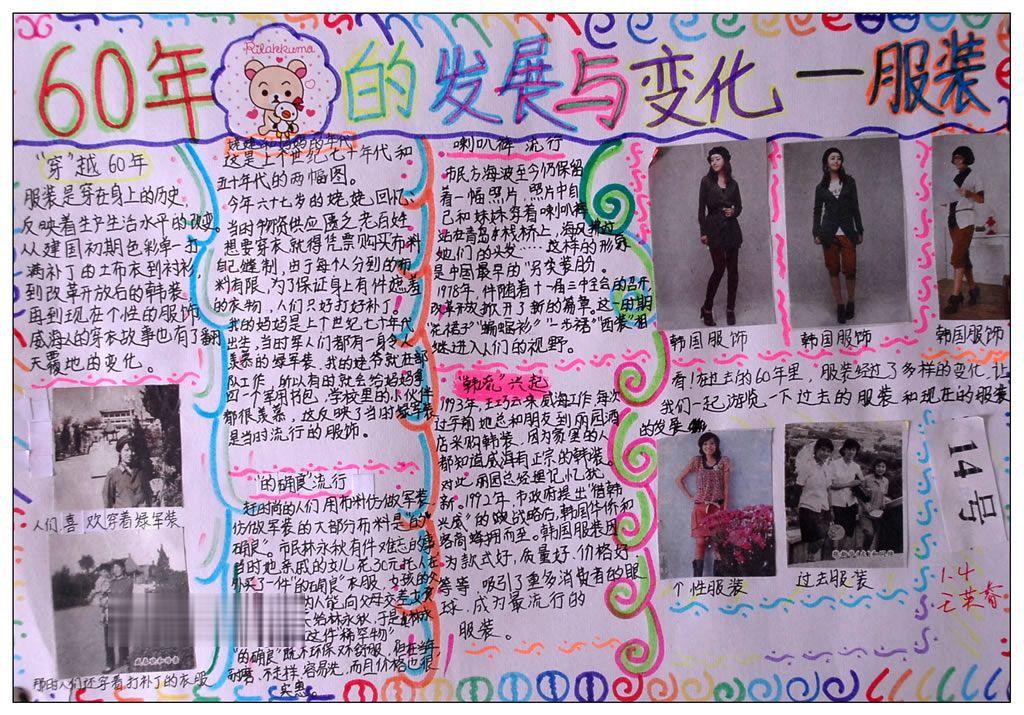 60年的发展与变化一服装
Rilakkuma
"穿"越60年
服装是穿在身上的历史,
反映着生产生活水平的改变。
从建国初期色彩单一打
满补丁由土布衣到衬衫,
到改革开放后的韩装,
再到现在个性的服饰
威海人的穿衣故事也有了翻
天覆地的变化。
人们喜欢穿着绿军装
那时人们还穿着打补丁的衣服
姥姥和妈妈的年代
这是上个世纪七十年代和
五十年代的两幅图。
今年六十七岁的姥姥回忆,
当时物资供应匮乏老百姓
想要穿衣就得凭票购买布料
自己缝制,由于每个人分到的布
料有限,为了保证身上有件遮羞
的衣物,人们只好打好补丁!
我的妈妈是上个世纪七十年代
出生,当时穿人们都有一身令人
羡慕的绿军装,我的姥爷就在部
队工作,所以有时就会给妈妈拿
回一个军用书包,学校里的小伙伴
都很羡慕,这反映了当时绿军装
是当时流行的服饰。
"的确良"流行
赶时尚的人们用布料仿做军装
仿做军装的大部分布料是"的
确良"。市民林永秋有件难忘的事
当时她亲戚的女儿花30元托人在
外买了一件"的确良"衣服
的人能向父母交差
给林永秋,于是林永
这件"稀罕物"
"的确良"既不环保又不舒服,但在当年
耐磨,不走样,容易洗,而且价格也很
实惠。
喇叭裤流行
市民方海波至今仍保留
着一幅照片,照片中自
己和妹妹穿着喇叭裤
站在青岛木栈桥上,海风拂过
她们的头发……这样的形象
是中国最早的"另类装扮。
1978年,伴随着十一届三中全会的召开,
改革开放掀开了新的篇章。这一时期
"花裙子""蝙蝠衫""一步裙""西装"相
继进入人们的视野。
"韩流"兴起
1993年,王巧云来威海工作每次
过年前她总和朋友到丽园酒
店采购韩装,因为家里的人
都知道威海有正宗的韩装。
对她,丽园总经理记忆犹
新。1992年,市政府提出"借韩
兴威"的战略后,韩国华侨和
客商蜂拥而至。韩国服装因
为款式好,质量好,价格好
等等,吸引了更多消费者的眼
球,成为最流行的
服装。
韩国服饰
韩国服饰
韩国服饰
看!在过去的60年里,服装经过了多样的变化,让
我们一起游览一下过去的服装和现在的服装
的发展
个性服装
过去服装
14号
1.4
王英春